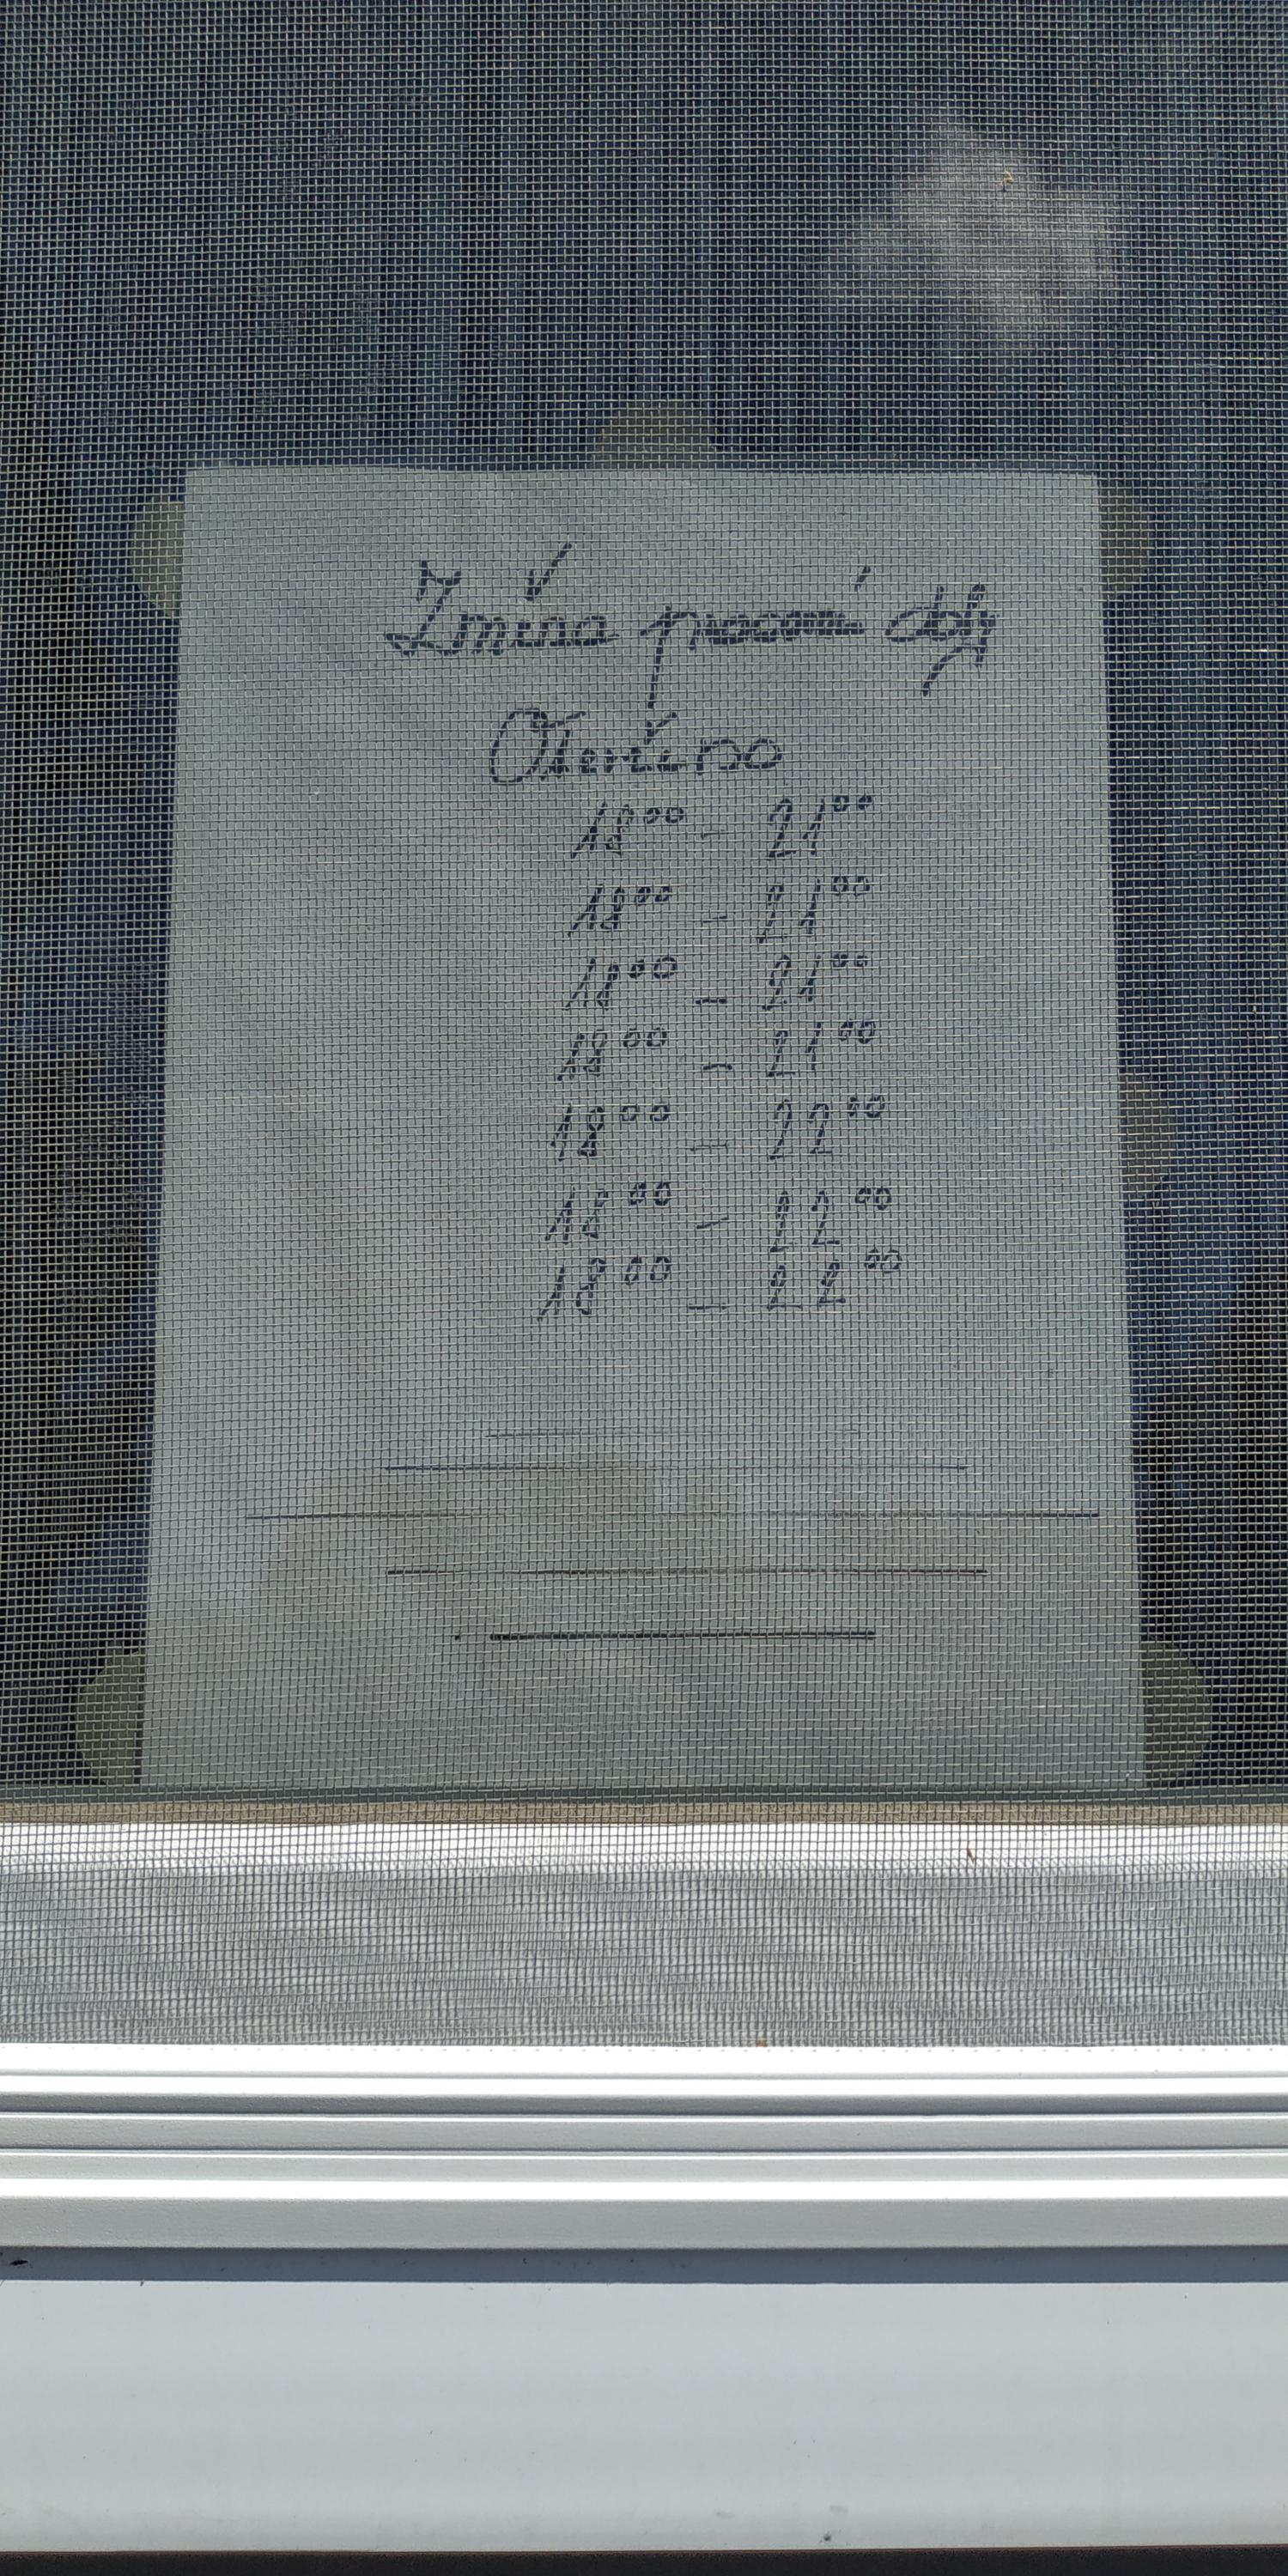 Změna pracovní doby
Otevřeno
18⁰⁰ - 21⁰⁰
18⁰⁰ - 21⁰⁰
18⁰⁰ - 21⁰⁰
18⁰⁰ - 21⁰⁰
18⁰⁰ - 22⁰⁰
18⁰⁰ - 22⁰⁰
18⁰⁰ - 22⁰⁰